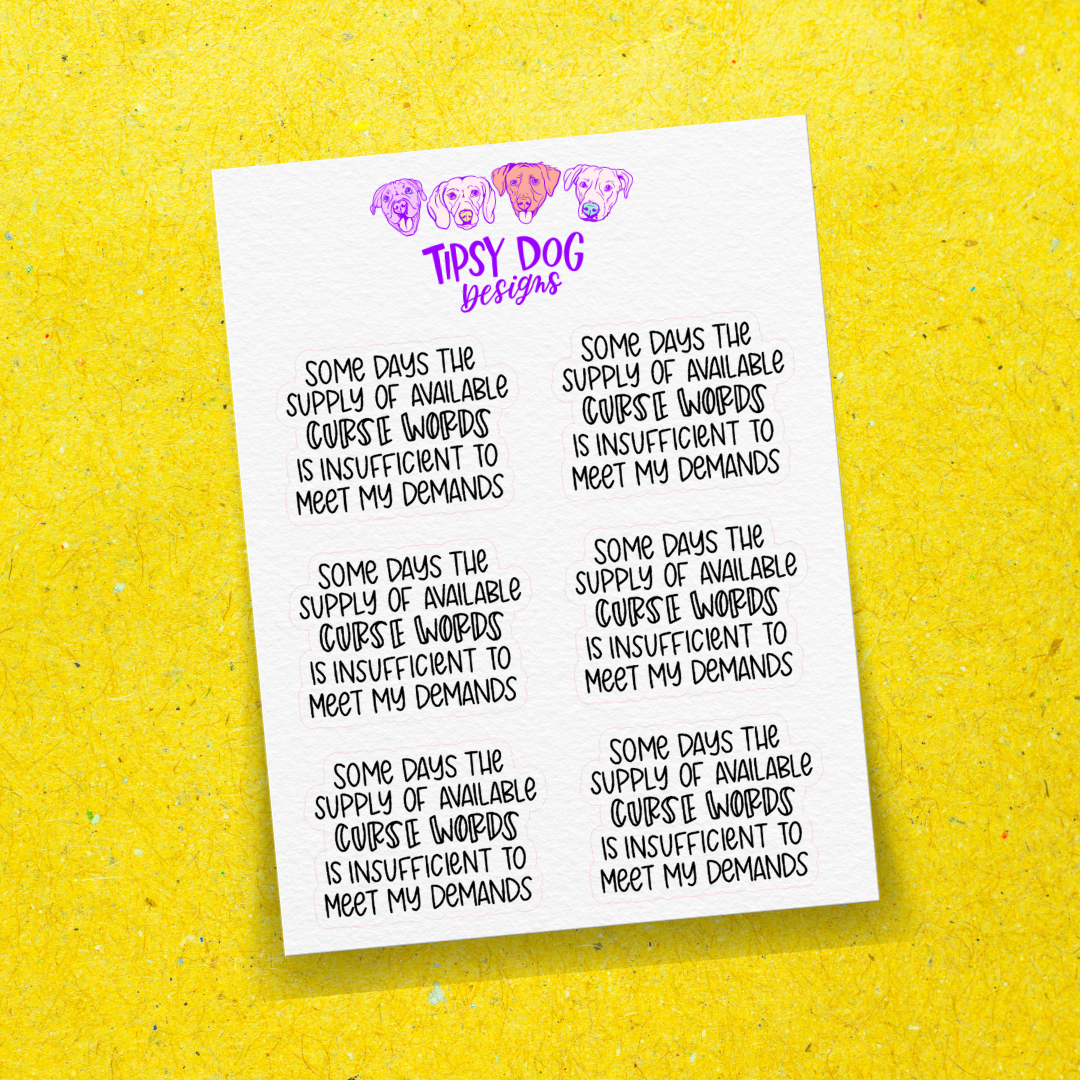 TIPSY DOG
Designs
SOME DAYS THE
SUPPLY OF AVAILABLE
CURSE WORDS
IS INSUFFICIENT TO
MEET MY DEMANDS
SOME DAYS THE
SUPPLY OF AVAILABLE
CURSE WORDS
IS INSUFFICIENT TO
MEET MY DEMANDS
SOME DAYS THE
SUPPLY OF AVAILABLE
CURSE WORDS
IS INSUFFICIENT TO
MEET MY DEMANDS
SOME DAYS THE
SUPPLY OF AVAILABLE
CURSE WORDS
IS INSUFFICIENT TO
MEET MY DEMANDS
SOME DAYS THE
SUPPLY OF AVAILABLE
CURSE WORDS
IS INSUFFICIENT TO
MEET MY DEMANDS
SOME DAYS THE
SUPPLY OF AVAILABLE
CURSE WORDS
IS INSUFFICIENT TO
MEET MY DEMANDS